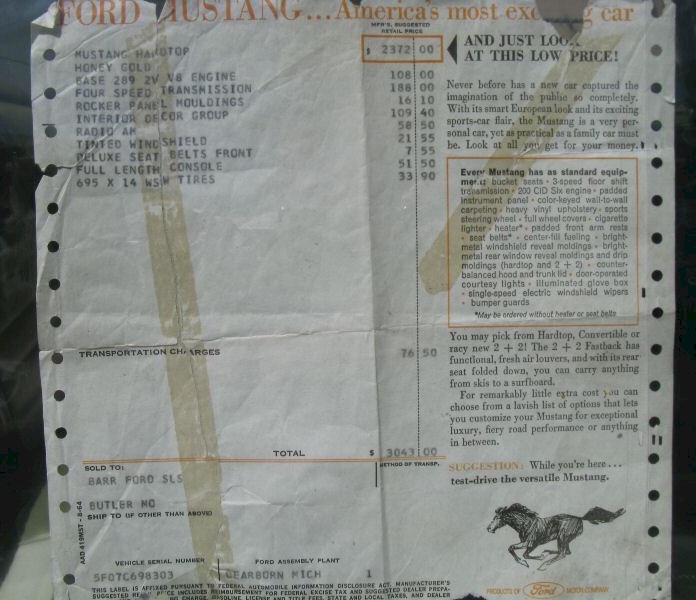 FORD MUSTANG...America's most exciting car
MFR'S. SUGGESTED
RETAIL PRICE
MUSTANG HARDTOP $ 2372 00
HONEY GOLD
BASE 289 2V V8 ENGINE 108 00
FOUR SPEED TRANSMISSION 188 00
ROCKER PANEL MOULDINGS 16 10
INTERIOR DECOR GROUP 109 40
RADIO AM 58 50
TINTED WINDSHIELD 21 55
DELUXE SEAT BELTS FRONT 7 55
FULL LENGTH CONSOLE 51 50
695 X 14 WSW TIRES 33 90
TRANSPORTATION CHARGES 76 50
TOTAL $ 3043 00
SOLD TO:
METHOD OF TRANSP.
BARR FORD SLS
BUTLER MO
SHIP TO (IF OTHER THAN ABOVE)
AAD 419MST - 8-64
VEHICLE SERIAL NUMBER FORD ASSEMBLY PLANT
5F07C698303 DEARBORN MICH 1
THIS LABEL IS AFFIXED PURSUANT TO FEDERAL AUTOMOBILE INFORMATION DISCLOSURE ACT. MANUFACTURER'S
SUGGESTED RETAIL PRICE INCLUDES REIMBURSEMENT FOR FEDERAL EXCISE TAX AND SUGGESTED DEALER PREPA-
LICENSE AND TITLE FEES, STATE AND LOCAL TAXES, AND DEALER
AND JUST LOOK
AT THIS LOW PRICE!
Never before has a new car captured the
imagination of the public so completely.
With its smart European look and its exciting
sports-car flair, the Mustang is a very per-
sonal car, yet as practical as a family car must
be. Look at all you get for your money.
Every Mustang has as standard equip-
ment: bucket seats • 3-speed floor shift
transmission • 200 CID Six engine • padded
instrument panel • color-keyed wall-to-wall
carpeting • heavy vinyl upholstery • sports
steering wheel • full wheel covers • cigarette
lighter • heater* • padded front arm rests
• seat belts* • center-fill fueling • bright-
metal windshield reveal moldings • bright-
metal rear window reveal moldings and drip
moldings (hardtop and 2 + 2) • counter-
balanced hood and trunk lid • door-operated
courtesy lights • illuminated glove box
• single-speed electric windshield wipers
• bumper guards
*May be ordered without heater or seat belts
You may pick from Hardtop, Convertible or
racy new 2 + 2! The 2 + 2 Fastback has
functional, fresh air louvers, and with its rear
seat folded down, you can carry anything
from skis to a surfboard.
For remarkably little extra cost you can
choose from a lavish list of options that lets
you customize your Mustang for exceptional
luxury, fiery road performance or anything
in between.
SUGGESTION: While you're here...
test-drive the versatile Mustang.
PRODUCTS OF Ford MOTOR COMPANY